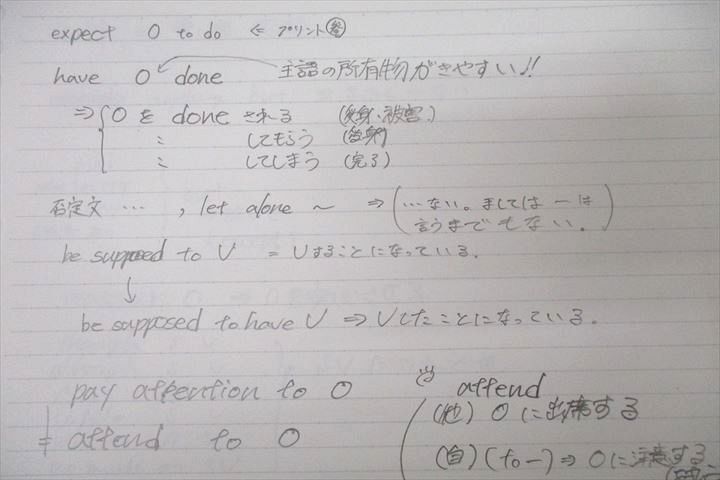 expect O to do ⇐ プリント㊫
have O done 主語の所有物がきやすい!!
⇒ O を done される (受身・被害)
〃 してもらう
〃 してしまう (完了)
否定文 …, let alone ~ ⇒ (…ない。ましてしは ―は
言うまでもない。)
be supposed to V = Vすることになっている。
↓
be supposed to have V ⇒ Vしたことになっている。
pay attention to O
attend to O
attend
(他) Oに出席する
(自) (to―) ⇒ Oに注意する